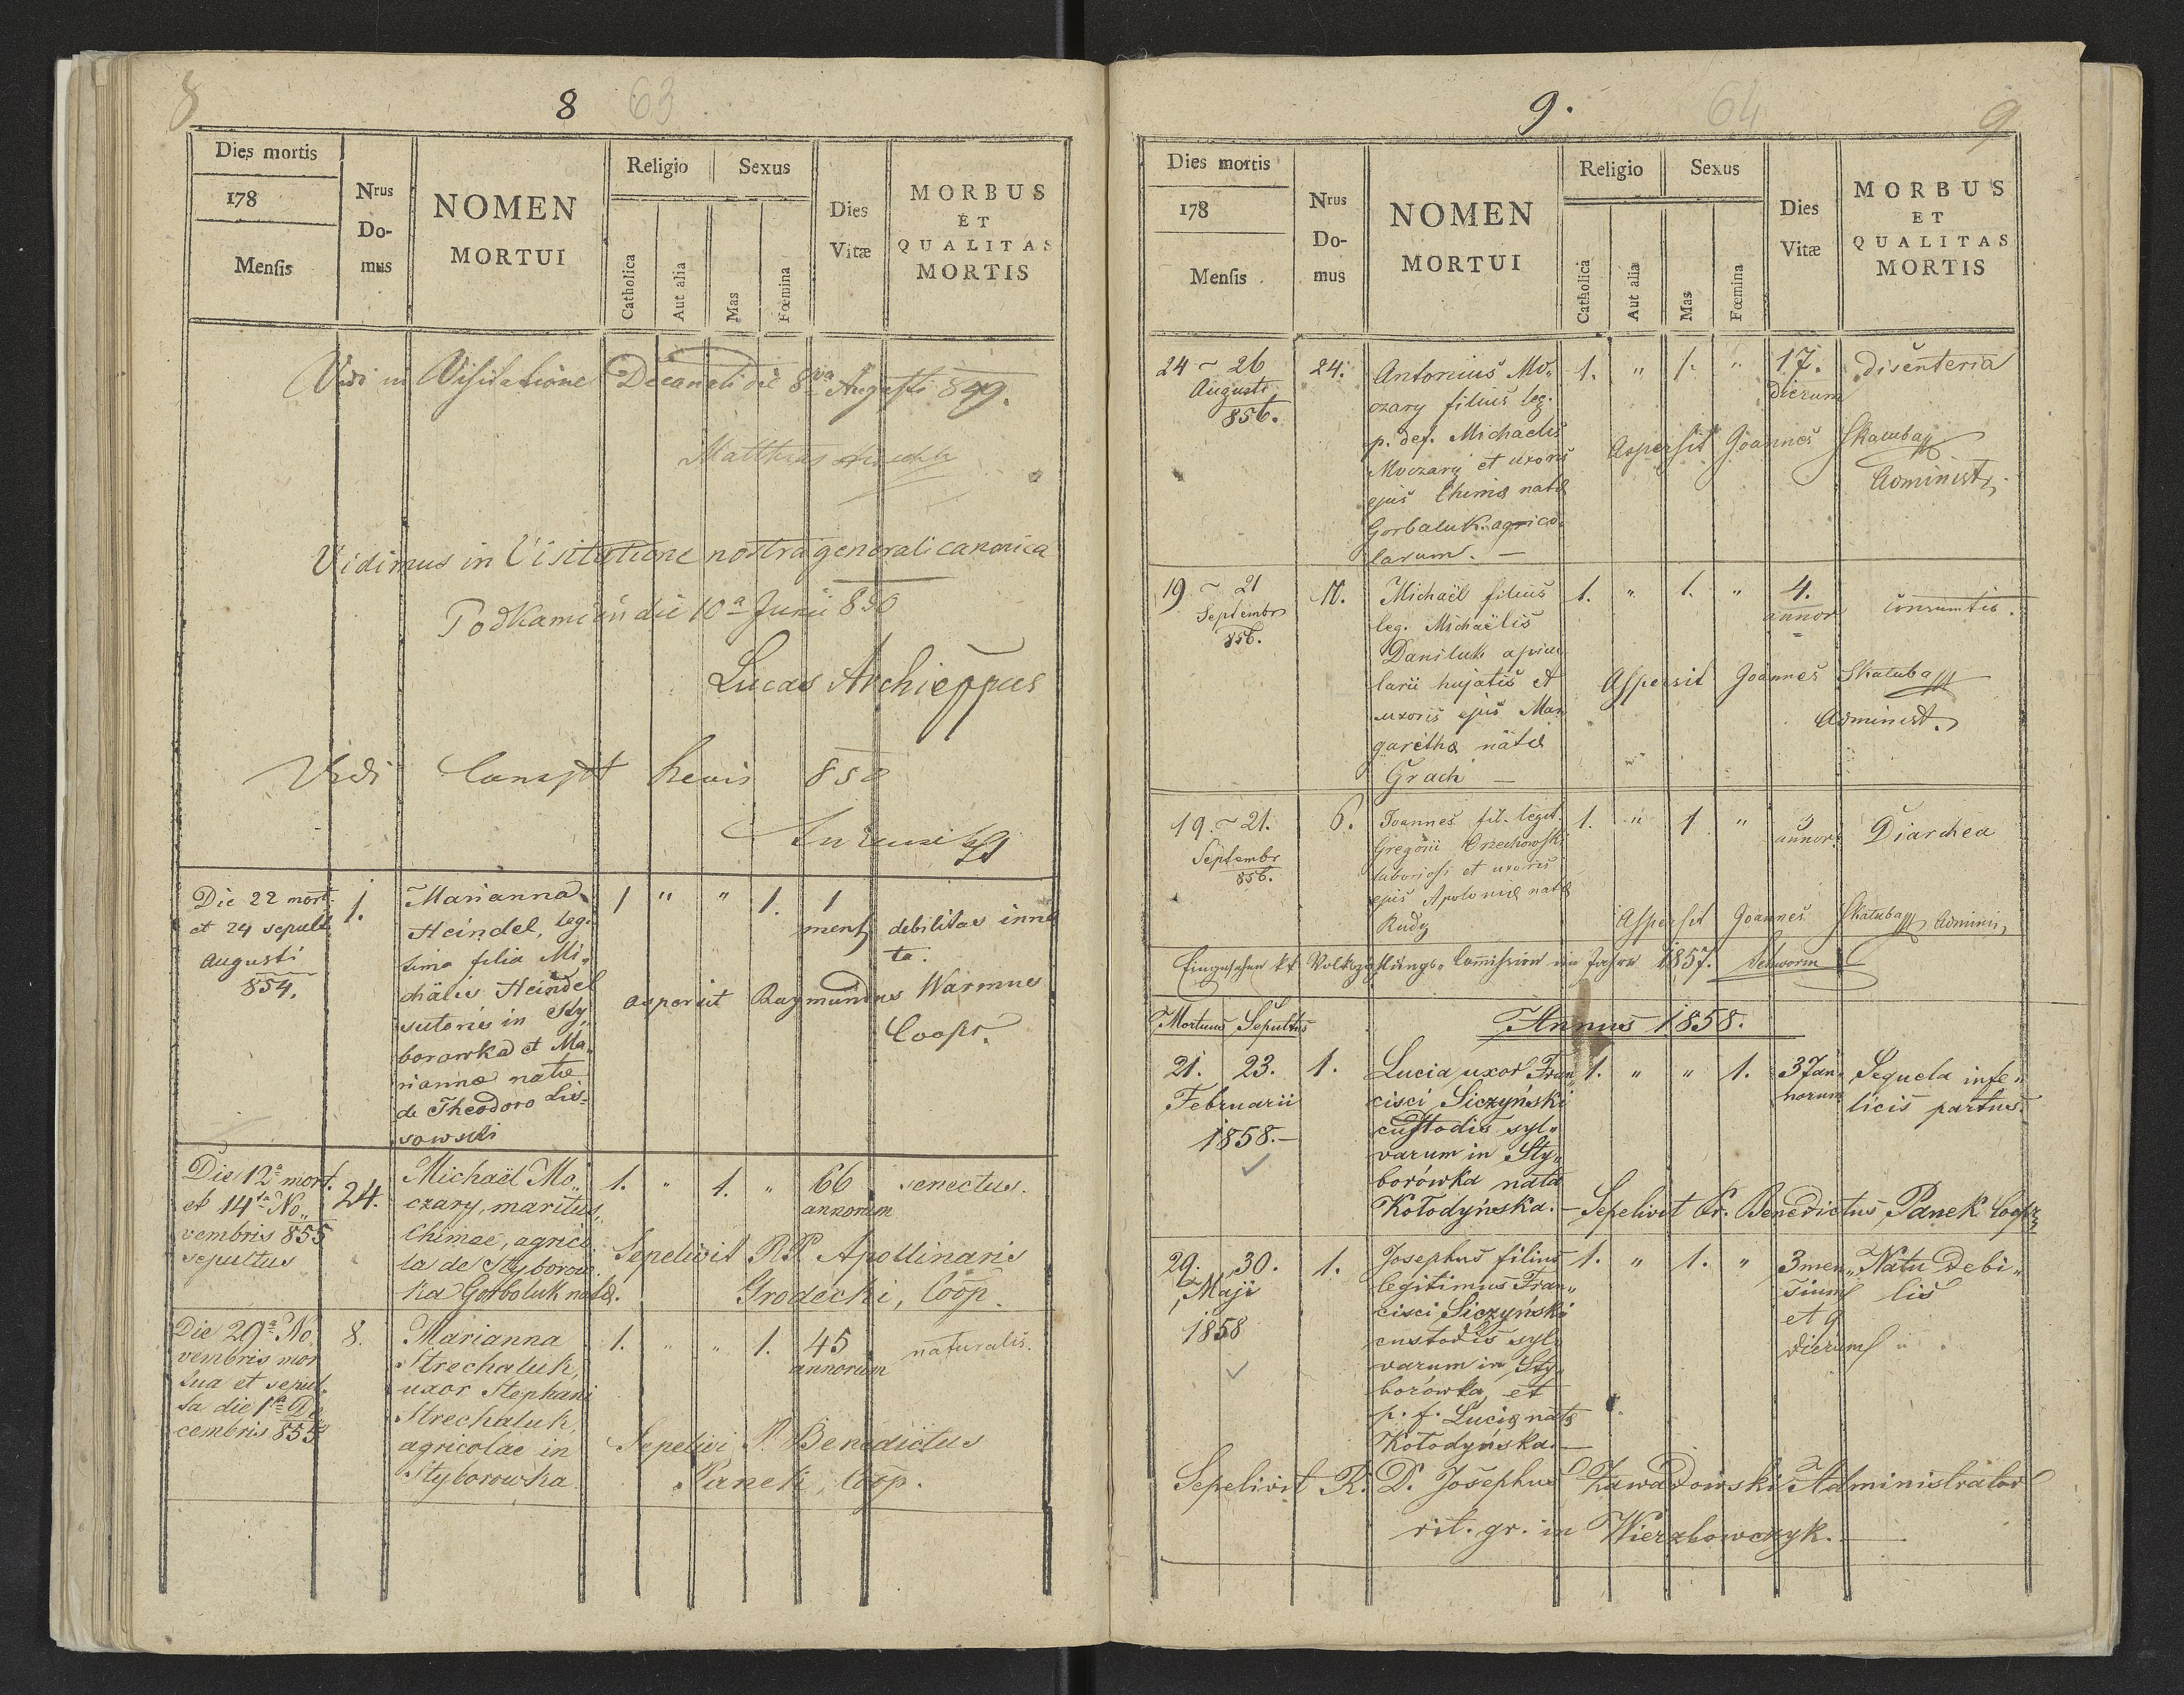 8
8
63
Dies mortis
178
Mensis
Nrus
Do-
mus
NOMEN
MORTUI
Religio
Sexus
Catholica
Aut alia
Mas
Fœmina
Dies
Vitæ
MORBUS
ET
QUALITAS
MORTIS
Vidi in Visitatione Decanali die 8va Augusti 849.
Matthæus
Vidimus in Visitatione nostra generali canonica
Podkamień die 10a Junii 850
Lucas Archieppus
Vidi Revis 850
Die 22 mort.
et 24 sepult
Augusti
854.
1.
Marianna
Heindel, leg.
tima filia Mi„
chälis Heindel
sutoris in Sty„
borowka et Ma„
rianna natæ
de Theodoro Lis=
sowski
1 " " 1.
1
mens
debilitas inna
ta.
aspersit Raymundus Warmus
Coopr.
Die 12a mort.
et 14ta No„
vembris 855
sepultus
24.
Michaël Mo„
czary, maritus,
Chimae, agrico
la de Styborow
ka Gorboluk natæ.
1. " 1. "
66
annorum
senectus.
Sepelivit R.P. Apollinaris
Grodecki, Coop.
Die 29a No
vembris mor
tua et sepul„
ta die 1a De
cembris 855
8.
Marianna
Strechaluk,
uxor Stephani
Strechaluk,
agricolae in
Styborowka.
1. " " 1.
45
annorum
naturalis.
Sepelivi P. Benedictus
Panek, Coop.
9.
64
9
Dies mortis
178
Mensis
Nrus
Do-
mus
NOMEN
MORTUI
Religio
Sexus
Catholica
Aut alia
Mas
Fœmina
Dies
Vitæ
MORBUS
ET
QUALITAS
MORTIS
24 ~ 26
Augusti
856.
24.
Antonius Mo„
czary filius leg.
p. def. Michaelis
Moczary et uxoris
ejus Chimæ natæ
Gorbaluk agrico„
larum. —
1. " 1. "
17.
dierum
disenteria
Aspersit Joannes Skałuba
Administr.
19 ~ 21
Septembr
856.
11.
Michaël filius
leg. Michaëlis
Daniluk
larii hujatis et
uxoris ejus Mar
garethæ natæ
Grach —
1. " 1. "
4.
annor
consumtio.
Aspersit Joannes Skałuba
Administ.
19. ~ 21.
Septembr
856.
6.
Joannes fil. legit.
Gregorii Orzechowski
laboriosi et uxoris
ejus Apoloniæ natæ
Rudy
1. " 1 "
3
annor.
Diarrhea
Aspersit Joannes Skałuba Adminis,
Eingesehen kk Volkszählungs-Commission im Jahre 1857.
Mortuus Sepultus
Annus 1858.
21. 23.
Februarii
1858.—
1.
Lucia uxor Fran„
cisci Siczyński
custodis syl„
varum in Sty„
borówka nata
Kołodyńska.—
1. " " 1.
37 an„
norum
Sequela infe„
licis partus.
Sepelivit Fr. Benedictus Panek Coopr
29. 30.
Maji
1858
1.
Josephus filius
legitimus Fran„
cisci Siczyński
custodis syl„
varum in Sty„
borówka, et
p. f. Luciæ natæ
Kołodyńska.—
1. " 1. "
3 men„
sium
et 9
dierum
Natu debi„
lis
Sepelivit R. D. Josephus Zawadowski Administrator
rit. gr. in Wierzbowczyk.